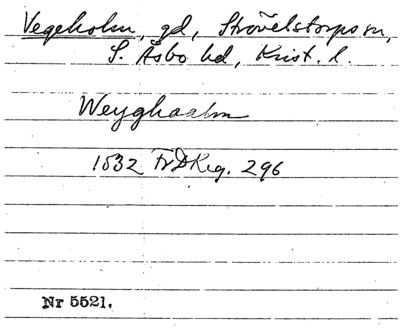 Vegeholm, gd, Strövelstorps sn,
S. Åsbo hd, Krist. l.
Weyghaalm
1532 FrDReg. 296
Nr 5521.